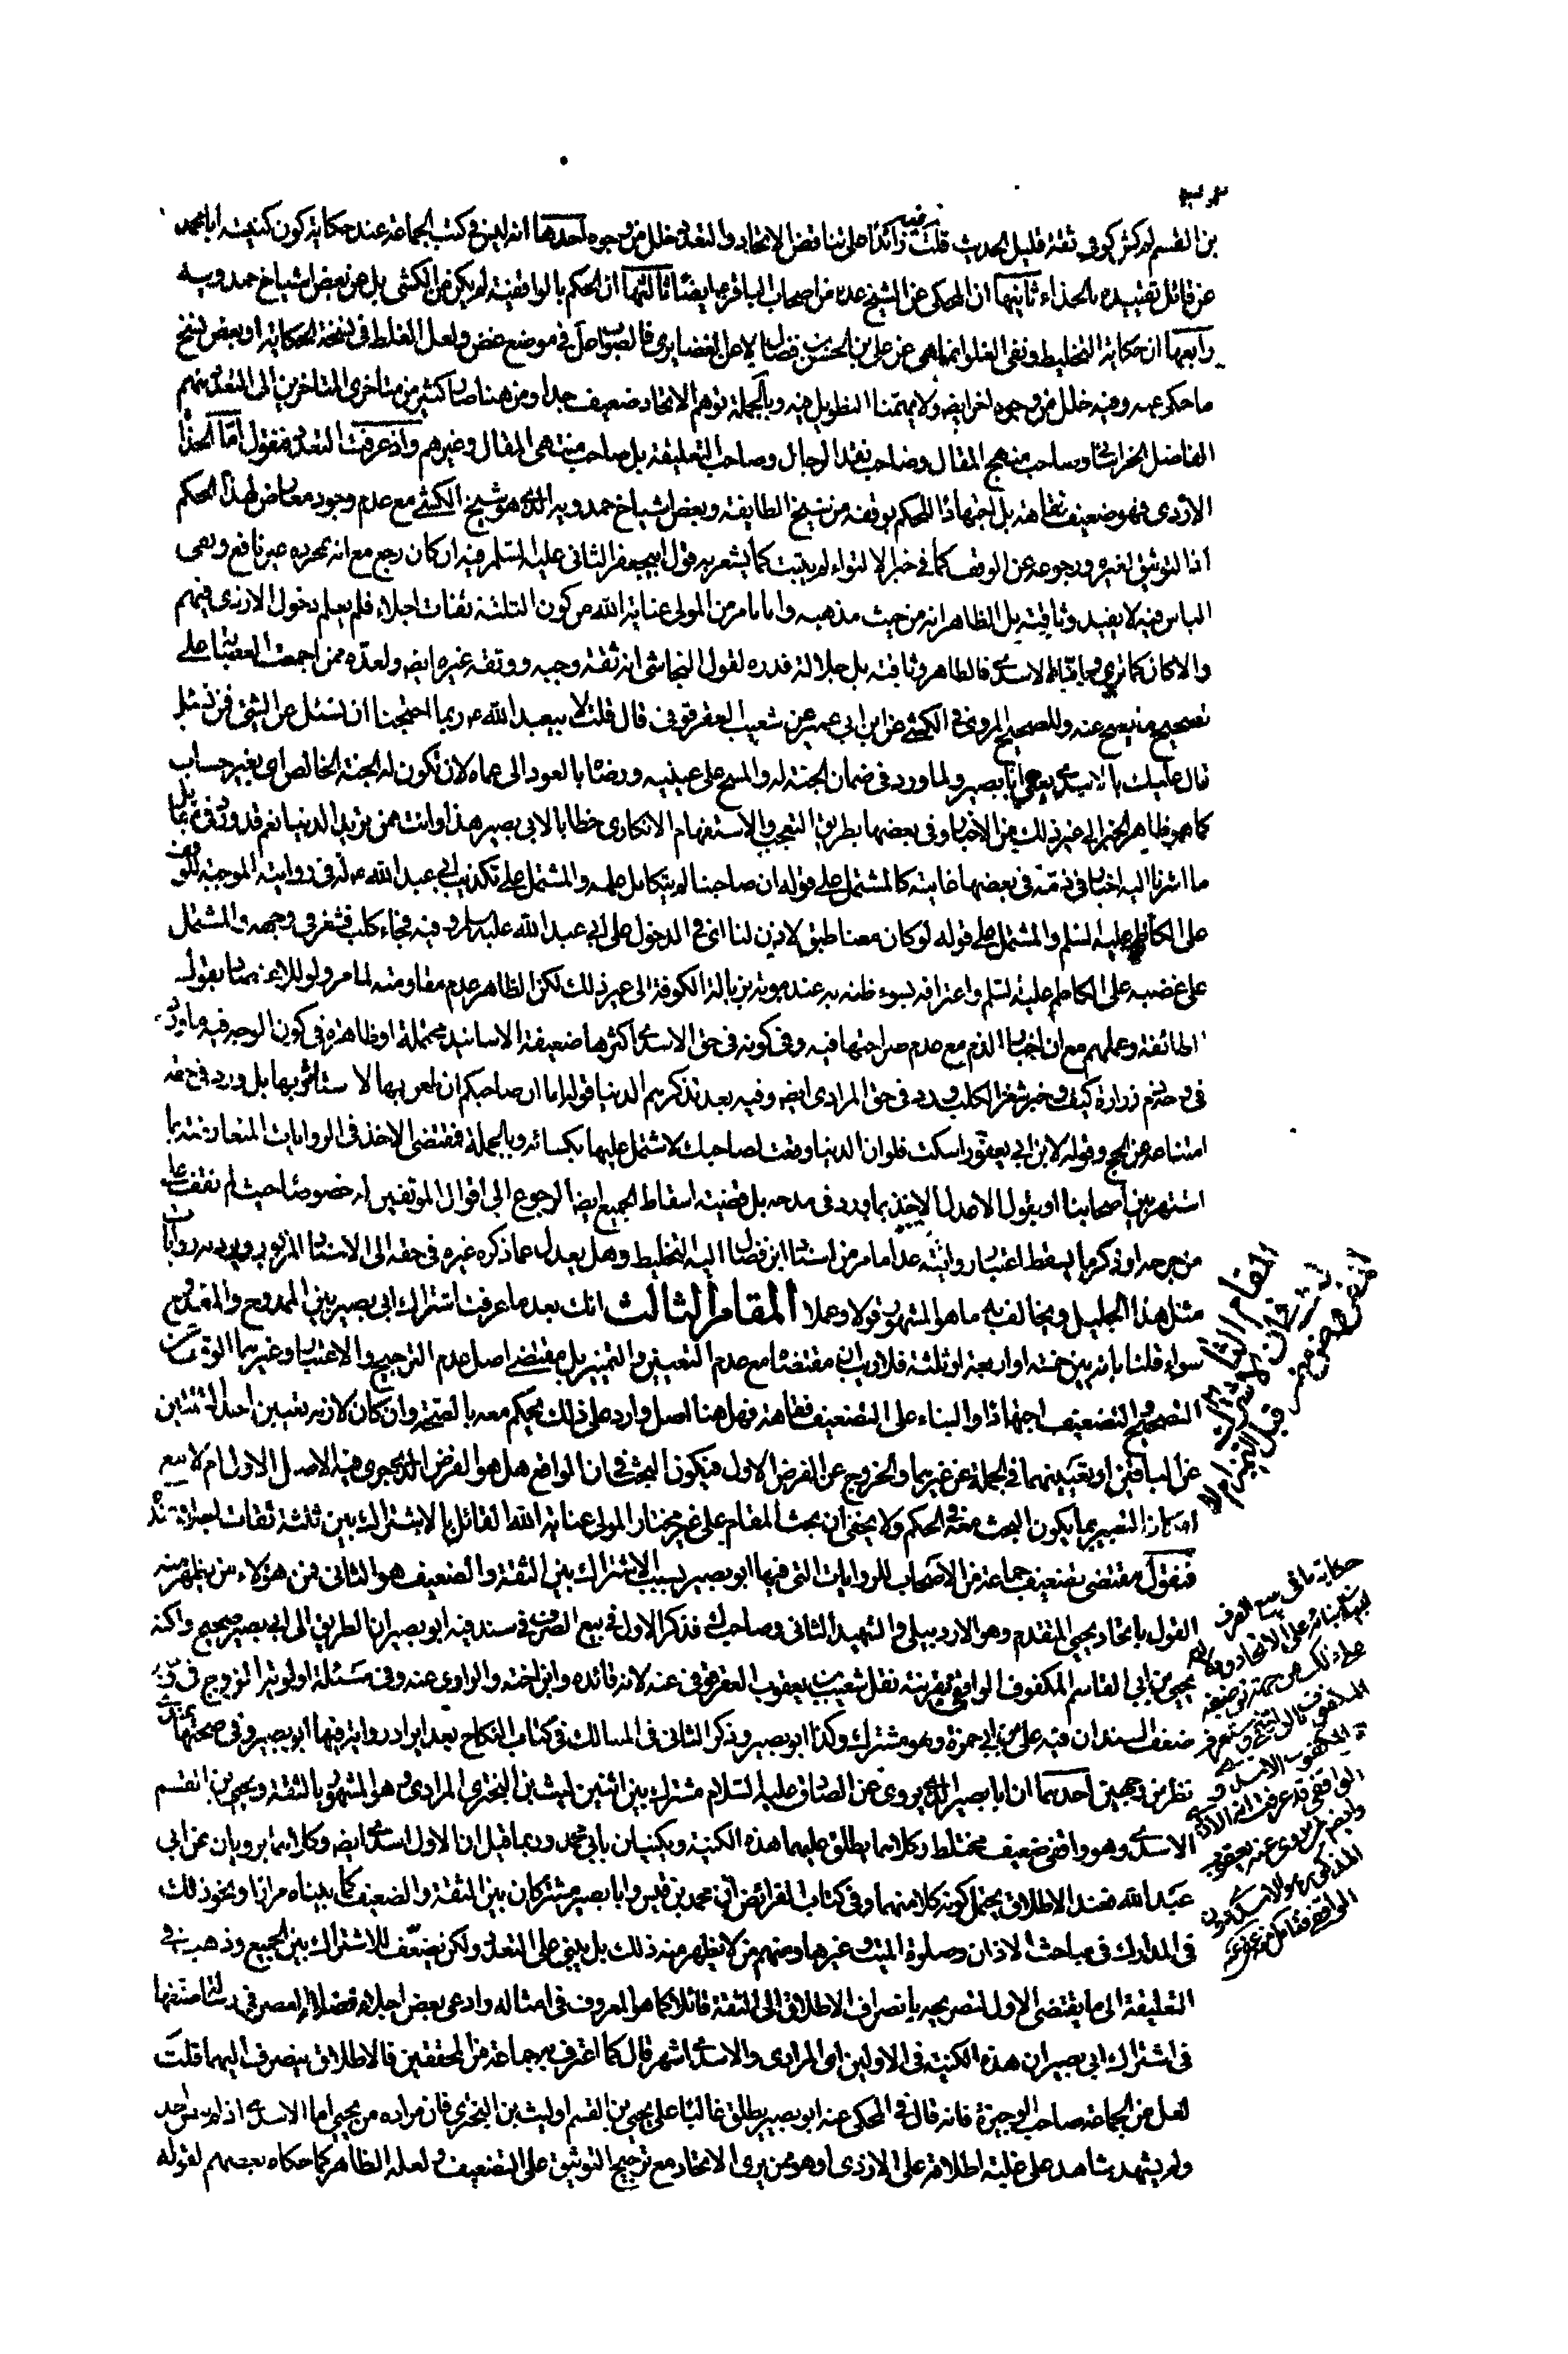 بن القسم له كش كوفى ثقة قليل الحديث قلت فيه زائدا على تناقض الاتحاد والتعدد خلل من وجوه احدها انه ليس فى كتب الجماعة عند حكاية كون كنيته ابا محمد
عن قائل تقييده بالحذاء ثانيها ان المحكى عن الشيخ عده من اصحاب الباقر ع ايضا ثالثها ان الحكم بالواقفية لم يكن من الكشى بل عن بعض اشياخ حمدويه
رابعها ان حكاية التخليط ونفى الغلو انما هى عن على بن الحسن بن فضال لا عن الغضايرى فالصواب فى موضع غض ولعل الغلط فى نسخة الحكاية او بعض نسخ
ما حكى عنه وفيه خلل من وجوه اخر ايضا ولا يهمنا التطويل فيه وبالجملة توهم الاتحاد ضعيف جدا ومن هنا صار كثير من متاخرى المتاخرين الى التعدد منهم
الفاضل الخراسانى وصاحب منهج المقال وصاحب نقد الرجال وصاحب التعليقة بل صاحب منتهى المقال وغيرهم واذ عرفت التعدد فنقول اما الحذا
الازدى فهو ضعيف فقاهة بل اجتهادا للحكم بوقفه من شيخ الطايفة وبعض اشياخ حمدويه الذى هو شيخ الكشى مع عدم وجود معارض لهذا الحكم
اذ التوثيق لغيره ورجوعه عن الوقف كما فى خبر الالتواء لم يثبت كما يشعر به قول ابيجعفر الثانى عليه السلم فيه ان كان رجع مع انه بمجرده غير نافع ونفى
الباس فيه لا يفيد وثاقته بل الظاهر انه من حيث مذهبه واما ما مر من المولى عناية الله من كون الثلثة ثقات اجلاء فلم يعلم دخول الازدى فيهم
والا كان كما ترى واما الاسدى فالظاهر وثاقته بل جلالة قدره لقول النجاشى انه ثقة وجيه ووثقه غيره ايضا ولعده ممن اجمعت العصابة على
تصحيح ما يصح عنه وللصحيح المروى فى الكشى عن ابن ابى عمير عن شعيب العقرقوفى قال قلت لابيعبد الله ع ربما احتجنا ان نسئل عن الشئ فمن نسئل
قال عليك بالاسدى يعنى ابا بصير ولما ورد فى ضمان الجنة له والمسح على عينيه ورضاه بالعود الى عماه لان تكون له الجنة الخالص اى بغير حساب
كما هو ظاهر الخبر الى غير ذلك من الاخبار وفى بعضها بطريق التعجب والاستفهام الانكارى خطابا لابى بصير هذا وانت ممن يريد الدنيا نعم قد ورد فى
ما اشرنا اليه اخبار فى ذمه فى بعضها غايته كالمشتمل على قوله ان صاحبنا لم يتكامل علمه والمشتمل على تكذيب ابى عبد الله ع له فى روايته الموجبة للوقف
على الكاظم عليه السلم والمشتمل على قوله لو كان معنا طبق لاذن لنا اى فى الدخول على ابى عبد الله عليه السلم وفيه فجاء كلب فشغر فى وجهه والمشتمل
على غضبه على الكاظم عليه السلم واعترافه بسوء ظنه به عند موته بزبالة الكوفة الى غير ذلك لكن الظاهر عدم مقاومته لما مر ولو للاعتضاد بقول
الطائفة وعملهم مع ان اخبار الذم مع عدم صراحتها فيه وفى كونه فى حق الاسدى اكثرها ضعيفة الاسانيد محتملة او ظاهرة فى كون الوجه فيه ما ورد
فى وجه ذم زرارة كيف وخبر شغر الكلب ورد فى حق المرادى ايضا وفيه بعد تذكرهم الدنيا قوله اما ان صاحبكم ان ظفر بها لاستاثر بها بل ورد فى حقه
امتناعه عن الحج وقوله لابن ابى يعفور اسكت فلو ان الدنيا وقعت لصاحبك لاشتمل عليها بكسائه وبالجملة فمقتضى الاخذ فى الروايات المتعارضة بما
اشتهر بين اصحابنا او بقول الاعدل الاخذ بما ورد فى مدحه بل قضية اسقاط الجميع ايضا الرجوع الى اقوال الموثقين له خصوصا حيث لم نقف على
من جرحه او ذكر ما يسقط اعتبار روايته عدا ما مر من اسناد ابن فضال اليه التخليط وهل يعدل عما ذكره غيره فى حقه الى الاسناد المزبور ويرد به روايات
مثل هذا الجليل ويخالف به ما هو المشهور قولا وعملا المقام الثالث انك بعد ما عرفت اشتراك ابى بصير بين الممدوح والمقدوح
سواء قلنا بانه بين خمسة او اربعة او ثلثة فلا ريب ان مقتضاه مع عدم التعيين والتمييز بل مقتضى اصل عدم الترجيح والاعتبار وغيرهما التوقف عن
التصحيح والتضعيف اجتهادا والبناء على التضعيف فقاهة فهل هنا اصل وارد على ذلك يحكم معه بالصحة وان كان لازمه تعيين احد الثقتين
عن الباقين او تعيينهما فى الجملة عن غيرهما والخروج عن الفرض الاول فيكون البحث فى ان الواقع هل هو الفرض الذى يجرى فيه الاصل الاول ام لا مع
امكان التعبير بما يكون البحث معه فى الحكم ولا يخفى ان بحث المقام على غير مختار المولى عناية الله القائل بالاشتراك بين ثلثة ثقات اجلاء
فنقول مقتضى تضعيف جماعة من الاصحاب للروايات التى فيها ابو بصير بسبب الاشتراك بين الثقة والضعيف هو الثانى فمن هؤلاء من يظهر منه
القول باتحاد يحيى المتقدم وهو الاردبيلى والشهيد الثانى وصاحب فذكر الاول فى بيع الصرف فى سند فيه ابو بصير ان الطريق الى ابى بصير صحيح ولكنه
يحيى بن ابى القاسم المكفوف الواقفى بقرينة نقل شعيب بن يعقوب العقرقوفى عنه لانه قائده وابن اخته والراوى عنه وفى مسئلة اولوية الزوج فى
ضعف السند ان فيه على بن ابى حمزة وهو مشترك وكذا ابو بصير وذكر الثانى فى المسالك فى كتاب النكاح بعد ايراد رواية فيها ابو بصير وفى صحتها
نظر من وجهين احدهما ان ابا بصير الذى يروى عن الصادق عليه السلام مشترك بين اثنين ليث بن البخترى المرادى وهو المشهور بالثقة ويحيى بن القسم
الاسدى وهو واقفى ضعيف مختلط وكلاهما يطلق عليهما هذه الكنية ويكنيان بابى محمد وربما قيل ان الاول اسدى ايضا وكلاهما يرويان عن ابى
عبد الله فعند الاطلاق يحتمل كونه كلا منهما وفى كتاب الفرائض ان محمد بن قيس وابا بصير مشتركان بين الثقة والضعيف كما بيناه مرارا ونحو ذلك
فى المدارك فى مباحث الاذان وصلوة الميت وغيرها ومنهم من لا يظهر منه ذلك بل يبنى على التعدد ولكن يضعف للاشتراك بين الجميع وذهب فى
التعليقة الى ما يقتضى الاول لتصريحه بانصراف الاطلاق الى الثقة قائلا كما هو المعروف فى امثاله وادعى بعض اجلاء فضلاء العصر فى رسالة صنفها
فى اشتراك ابى بصير ان هذه الكنية فى الاولين اى المرادى والاسدى اشهر قال كما اعترف به جماعة من المحققين فالاطلاق ينصرف اليهما قلت
لعل من الجماعة صاحب الوجيزة فانه قال فى المحكى عنه ابو بصير يطلق غالبا على يحيى بن القسم او ليث بن البخترى فان مراده من يحيى اما الاسدى اذ لم يقل احد
ولم يشهد شاهد على غلبة اطلاقه على الازدى او هو ممن يرى الاتحاد مع ترجيح التوثيق على التضعيف ولعله الظاهر كما حكاه بعضهم لقوله
المقام الثالث
حكاية ما فى بيع الصرف